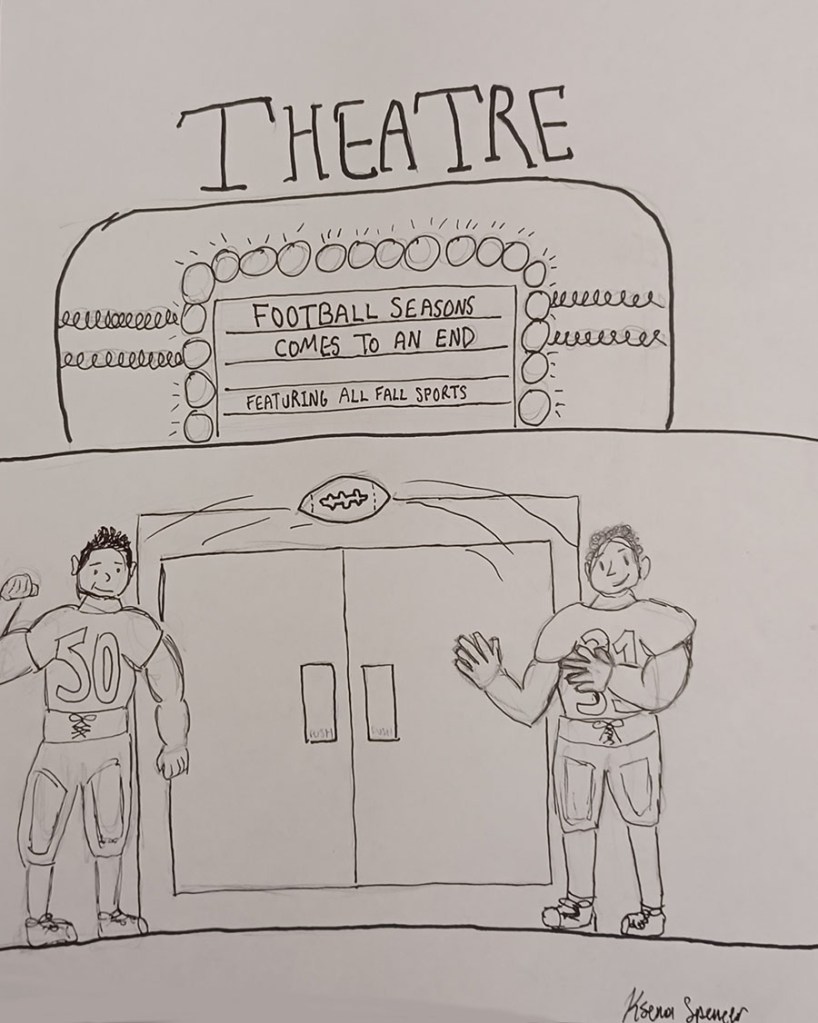 THEATRE
FOOTBALL SEASONS
COMES TO AN END
FEATURING ALL FALL SPORTS
50
31
PUSH PUSH
Ksena Spencer